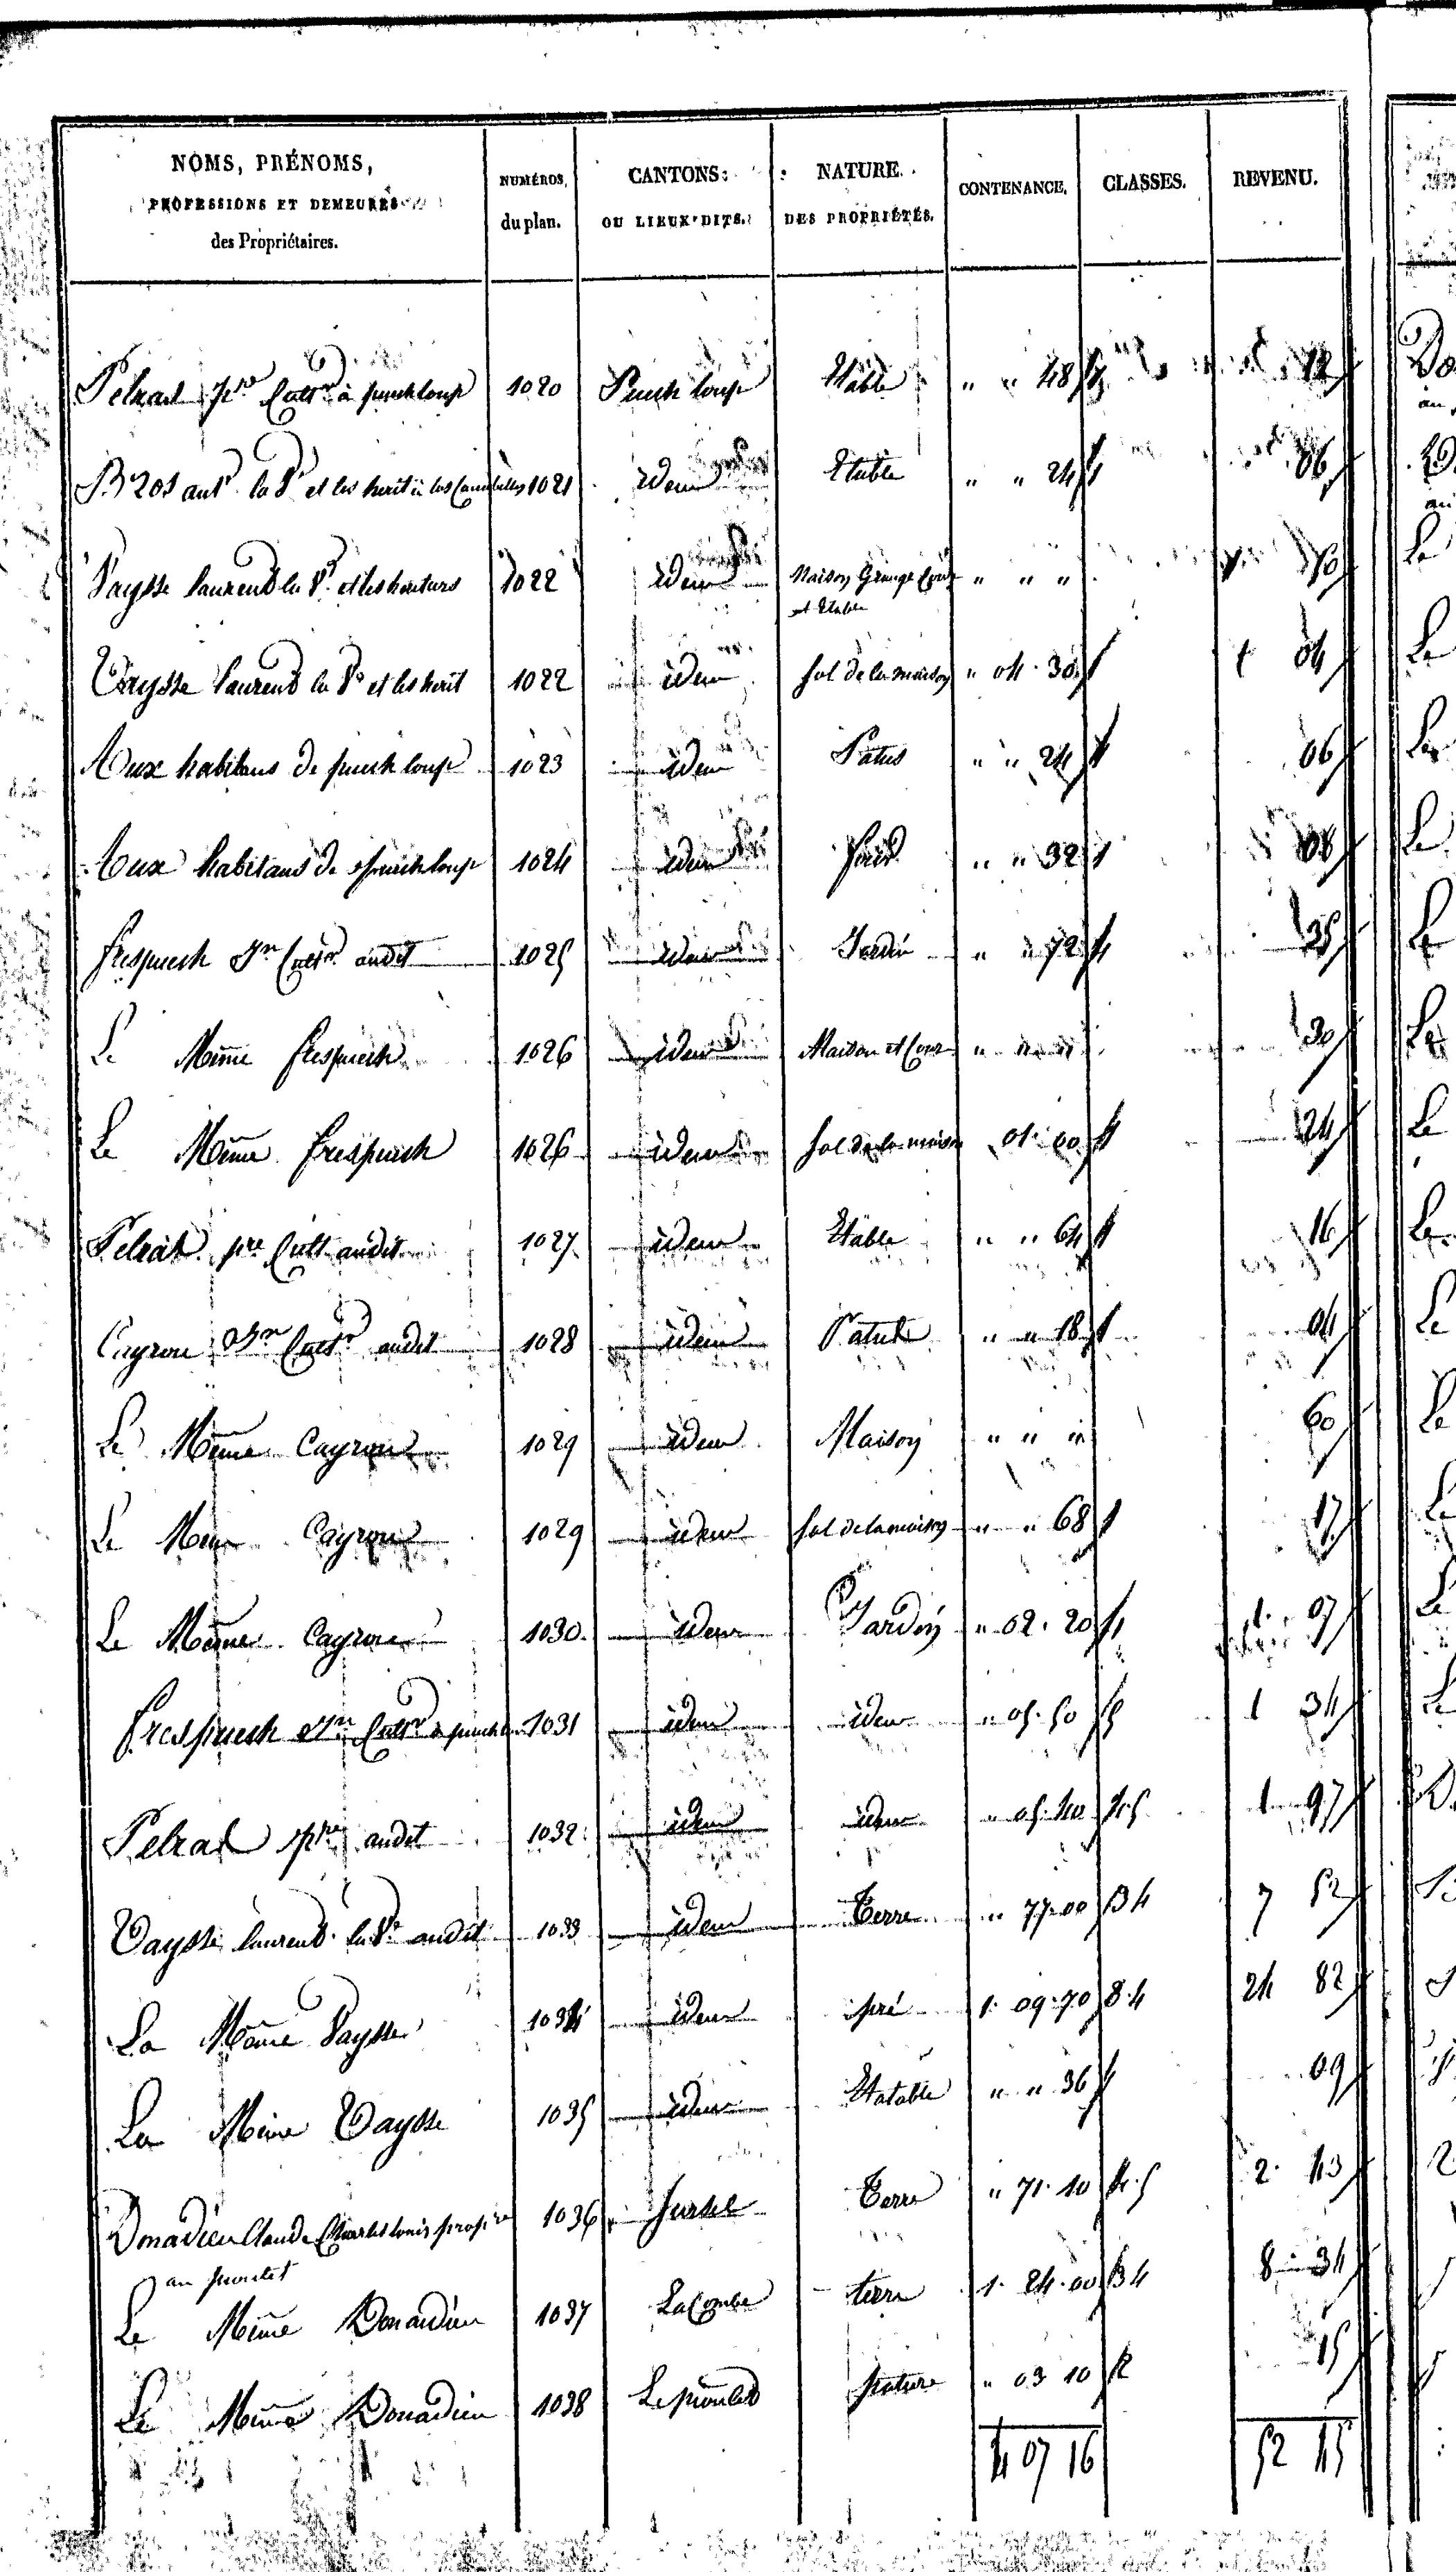 NOMS, PRÉNOMS, PROFESSIONS ET DEMEURES des Propriétaires. NUMÉROS, du plan. CANTONS: OU LIEUX DITS. NATURE. DES PROPRIÉTÉS. CONTENANCE. CLASSES. REVENU.
Pelrat pre Cultr à puech loup 1020 Puech loup Etable " " 48 1 12
Bros ant la Ve et les herit à las 1021 idem Etable " " 24 1 06
Vaysse laurend la Ve et les heritiers 1022 idem Maison Grange Cour " " "
et Etable
Vaysse laurend la Ve et les herit 1022 idem sol de la maison " 04. 30 1 1 04
Aux habitans de puech loup 1023 idem Patus " " 24 1 06
Aux habitans de puech loup 1024 idem " " 32 1 08
frespuech Jn Cultr audit 1025 idem Jardin " " 72 1 35
Le Même frespuech 1026 idem Maison et Cour " " " 30
Le Même frespuech 1026 idem sol de la maison 01. 00 1 24
Pelrat pre Cult audit 1027 idem Etable " " 64 1 16
Cayrou Jn Cultr audit 1028 idem " " 18 1 04
Le Même Cayrou 1029 idem Maison " " " 60
Le Même Cayrou 1029 idem sol de la maison " " 68 1 17
Le Même Cayrou 1030 idem Jardin " 02. 20 1 1. 07
frespuech Jn Cultr à puech 1031 idem idem " 05. 50 5 1 34
Pelrat pre audit 1032 idem idem " 05. 40 4.5 1 97
Vaysse laurend la Ve audit 1033 idem Terre " 77. 00 3 4 7 52
La Même Vaysse 1034 idem pré 1. 09. 70 3.4 24 82
La Même Vaysse 1035 idem Etatable " " 36 1 09
Donadieu Claude Charles louis propre 1036 Terre " 71. 10 4.5 2. 43
au poulet
Le Même Donadieu 1037 La Combe terre 1. 24. 00 3 4 8 34
Le Même Donadieu 1038 Le poulet pature " 03 10 2 15
4 07 16 52 45